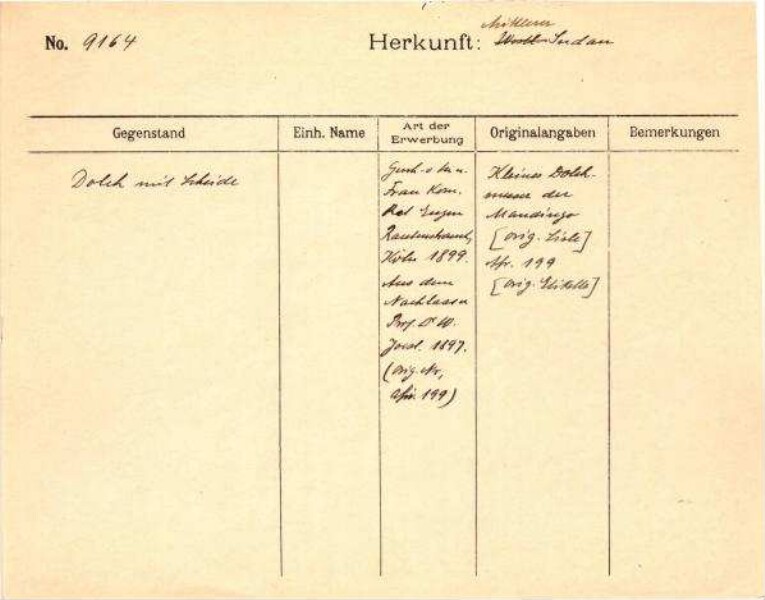 No. 9164
Herkunft: Mittlerer
West-Sudan
Gegenstand
Einh. Name
Art der
Erwerbung
Originalangaben
Bemerkungen
Dolch mit Scheide
Gesch. d.
Frau Kom.
Rat Eugen
Rautenstrauch,
Köln 1899.
Aus dem
Nachlasse
Prof. Dr W.
Joest. 1897.
(orig. Nr,
Afr. 199)
Kleines Dolch-
messer der
Mandingo
[orig. Liste]
Afr. 199
[orig. Etikette]